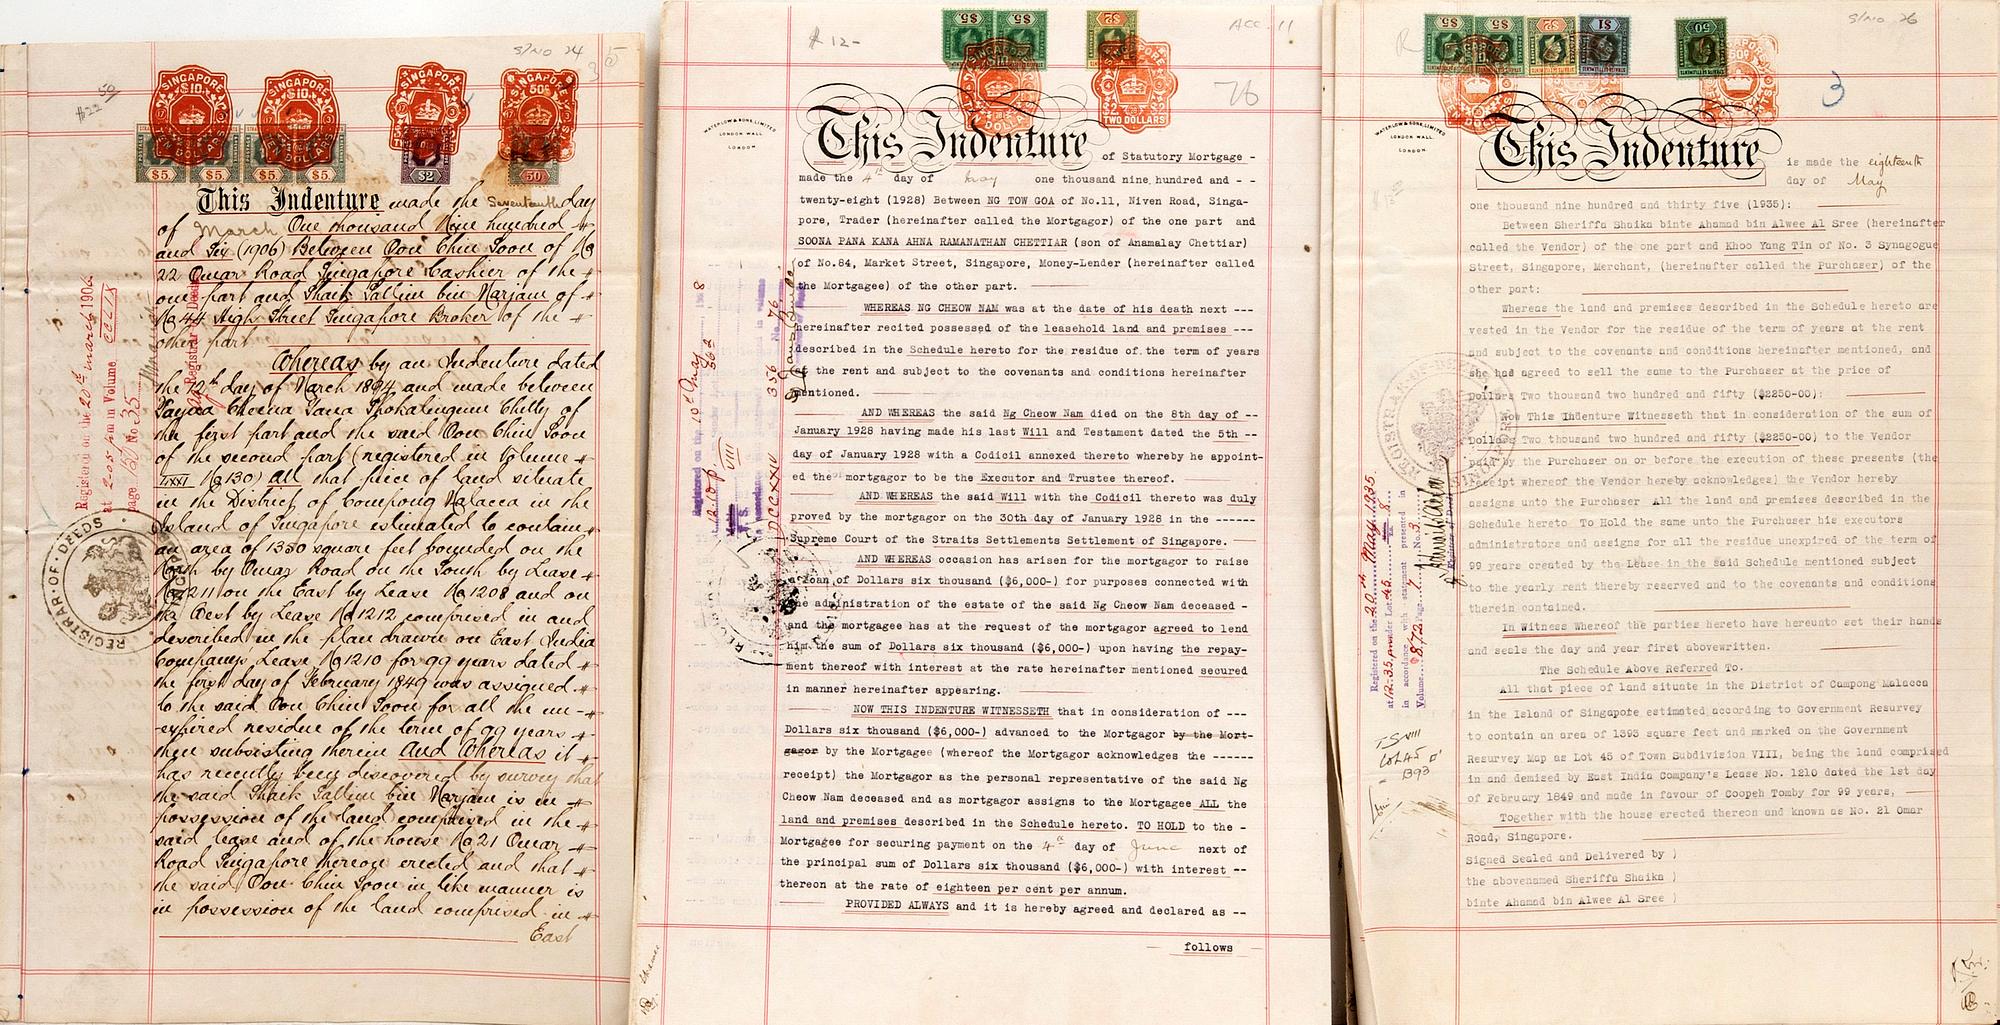 S/No 24
$22 50
SINGAPORE
$10
TEN DOLLARS
SINGAPORE
$10
TEN DOLLARS
SINGAPORE
SINGAPORE
50c
$5.
$5.
$5.
$5.
$2
50
This Indenture made the Seventeenth day
of March One thousand Nine hundred
and Six (1906) Between Oon Chin Soon of No
22 Omar Road Singapore Cashier of the
one part and Shaik Sallim bin Marjam of
No 44 High Street Singapore Broker of the
other part
Whereas by an Indenture dated
the 12th day of March 1894 and made between
Tayna Cheena Tana Shokalingum Chitty of
the first part and the said Oon Chin Soon
of the second part (registered in Volume
No 130) all that piece of land situate
in the District of Campong Malacca in the
Island of Singapore estimated to contain
an area of 1350 square feet bounded on the
North by Omar Road on the South by Lease
No 1211 on the East by Lease No 1208 and on
the West by Lease No 1212 comprised in and
described in the plan drawn on East India
Company's Lease No 1210 for 99 years dated
the first day of February 1849 was assigned
to the said Oon Chin Soon for all the un-
-expired residue of the term of 99 years
then subsisting therein And Whereas it
has recently been discovered by survey that
the said Shaik Sallim bin Marjam is in
possession of the land comprised in the
said lease and of the house No 21 Omar
Road Singapore thereon erected and that
the said Oon Chin Soon in like manner is
in possession of the land comprised in
East
Registered on the 20th March 1906
at 2.05 p.m in Volume CCLIX
page 150 No 35
REGISTRAR OF DEEDS
$12-
ACC. 11
76
$5
$5
$2
SINGAPORE
SINGAPORE
TWO DOLLARS
WATERLOW & SONS LIMITED
LONDON WALL
LONDON
This Indenture of Statutory Mortgage -
made the 4th day of May one thousand nine hundred and - -
twenty-eight (1928) Between NG TOW GOA of No.11, Niven Road, Singa-
pore, Trader (hereinafter called the Mortgagor) of the one part and
SOONA PANA KANA AHNA RAMANATHAN CHETTIAR (son of Anamalay Chettiar)
of No.84, Market Street, Singapore, Money-Lender (hereinafter called
the Mortgagee) of the other part.
WHEREAS NG CHEOW NAM was at the date of his death next ----
hereinafter recited possessed of the leasehold land and premises ---
described in the Schedule hereto for the residue of the term of years
at the rent and subject to the covenants and conditions hereinafter
mentioned.
AND WHEREAS the said Ng Cheow Nam died on the 8th day of --
January 1928 having made his last Will and Testament dated the 5th --
day of January 1928 with a Codicil annexed thereto whereby he appoint-
ed the mortgagor to be the Executor and Trustee thereof.
AND WHEREAS the said Will with the Codicil thereto was duly
proved by the mortgagor on the 30th day of January 1928 in the ------
Supreme Court of the Straits Settlements Settlement of Singapore.
AND WHEREAS occasion has arisen for the mortgagor to raise
a loan of Dollars six thousand ($6,000-) for purposes connected with
the administration of the estate of the said Ng Cheow Nam deceased -
and the mortgagee has at the request of the mortgagor agreed to lend
him the sum of Dollars six thousand ($6,000-) upon having the repay-
ment thereof with interest at the rate hereinafter mentioned secured
in manner hereinafter appearing.
NOW THIS INDENTURE WITNESSETH that in consideration of ---
Dollars six thousand ($6,000-) advanced to the Mortgagor by the Mort-
gagor by the Mortgagee (whereof the Mortgagor acknowledges the ------
receipt) the Mortgagor as the personal representative of the said Ng
Cheow Nam deceased and as mortgagor assigns to the Mortgagee ALL the
land and premises described in the Schedule hereto. TO HOLD to the -
Mortgagee for securing payment on the 4th day of June next of
the principal sum of Dollars six thousand ($6,000-) with interest --
thereon at the rate of eighteen per cent per annum.
PROVIDED ALWAYS and it is hereby agreed and declared as --
follows
S/No 26
3
$5
$5
$2
$1
50
WATERLOW & SONS LIMITED
LONDON WALL
LONDON.
This Indenture is made the eighteenth
day of May
one thousand nine hundred and thirty five (1935):
Between Sheriffa Shaika binte Ahamad bin Alwee Al Sree (hereinafter
called the Vendor) of the one part and Khoo Yang Tin of No. 3 Synagogue
Street, Singapore, Merchant, (hereinafter called the Purchaser) of the
other part:
Whereas the land and premises described in the Schedule hereto are
vested in the Vendor for the residue of the term of years at the rent
and subject to the covenants and conditions hereinafter mentioned, and
she has agreed to sell the same to the Purchaser at the price of
Dollars Two thousand two hundred and fifty ($2250-00):
Now This Indenture Witnesseth that in consideration of the sum of
Dollars Two thousand two hundred and fifty ($2250-00) to the Vendor
paid by the Purchaser on or before the execution of these presents (the
receipt whereof the Vendor hereby acknowledges) the Vendor hereby
assigns unto the Purchaser All the land and premises described in the
Schedule hereto To Hold the same unto the Purchaser his executors
administrators and assigns for all the residue unexpired of the term of
99 years created by the Lease in the said Schedule mentioned subject
to the yearly rent thereby reserved and to the covenants and conditions
therein contained.
In Witness Whereof the parties hereto have hereunto set their hands
and seels the day and year first abovewritten.
The Schedule Above Referred To.
All that piece of land situate in the District of Campong Malacca
in the Island of Singapore estimated according to Government Resurvey
to contain an area of 1393 square feet and marked on the Government
Resurvey Map as Lot 45 of Town Subdivision VIII, being the land comprised
in and demised by East India Company's Lease No. 1210 dated the 1st day
of February 1849 and made in favour of Coopeh Tomby for 99 years,
Together with the house erected thereon and known as No. 21 Omar
Road, Singapore.
Signed Sealed and Delivered by )
the abovenamed Sheriffa Shaika )
binte Ahamad bin Alwee Al Sree )
Registered on the 20th May 1935
at 12.35 p.m under Lot 45
in accordance with statement presented in
Volume 872 Page 17 No. 3
TS VIII
Lot 45
1393